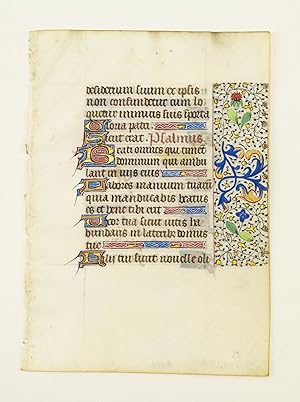 desiderium suum ex ipsis
non confundetur cum lo
quetur inimicis suis in porta
Gloria patri.
Sicut erat. Psalmus
Beati omnes qui timet
dominum qui ambu
lant in viis eius
Labores manuum tuarum
quia manducabis beatus
es et bene tibi erit
Uxor tua sicut vitis ha
bundans in lateribus domus
tue
Filii tui sicut novelle oli